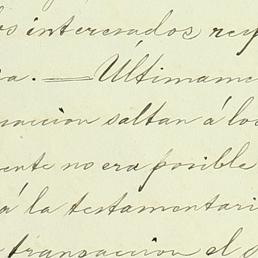 os interesados resp
ia. — Últimame
unicion saltan á los
ente no era posible
á la testamentari
transaccion el